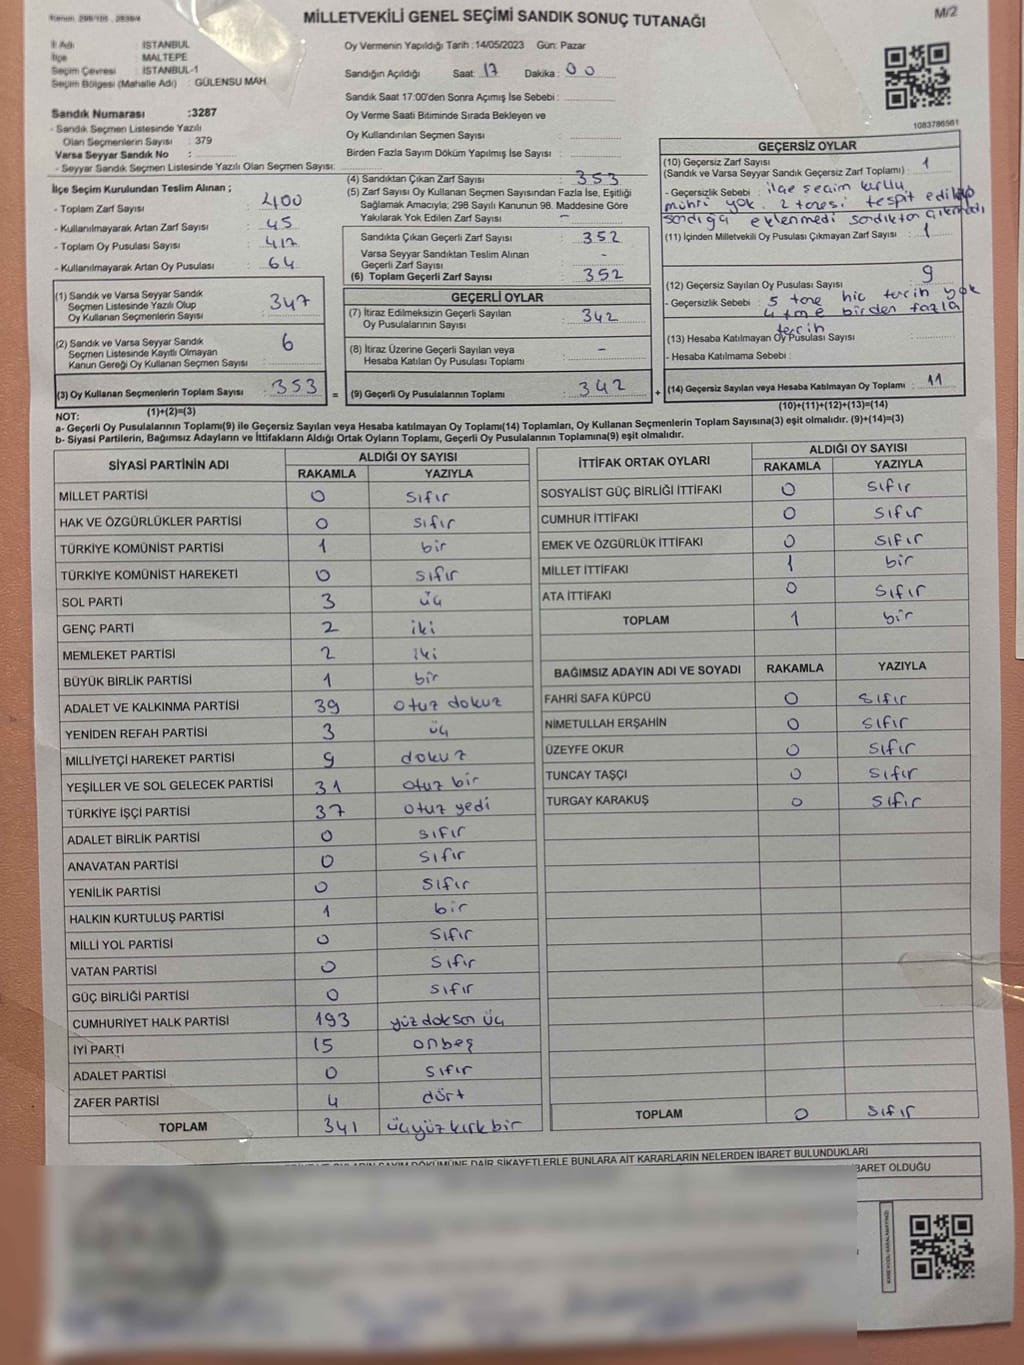 Kanun: 298/105 , 2839/4
MİLLETVEKİLİ GENEL SEÇİMİ SANDIK SONUÇ TUTANAĞI
M/2
İl Adı : İSTANBUL
İlçe : MALTEPE
Seçim Çevresi : İSTANBUL-1
Seçim Bölgesi (Mahalle Adı) : GÜLENSU MAH.
Sandık Numarası :3287
- Sandık Seçmen Listesinde Yazılı
Olan Seçmenlerin Sayısı : 379
Varsa Seyyar Sandık No :
- Seyyar Sandık Seçmen Listesinde Yazılı Olan Seçmen Sayısı:
Oy Vermenin Yapıldığı Tarih :14/05/2023 Gün: Pazar
Sandığın Açıldığı Saat: 17 Dakika : 00
Sandık Saat 17:00'den Sonra Açılmış İse Sebebi :
Oy Verme Saati Bitiminde Sırada Bekleyen ve
Oy Kullandırılan Seçmen Sayısı :
Birden Fazla Sayım Döküm Yapılmış İse Sayısı :
1083786561
İlçe Seçim Kurulundan Teslim Alınan ;
- Toplam Zarf Sayısı : 400
- Kullanılmayarak Artan Zarf Sayısı : 45
- Toplam Oy Pusulası Sayısı : 417
- Kullanılmayarak Artan Oy Pusulası : 64
(1) Sandık ve Varsa Seyyar Sandık
Seçmen Listesinde Yazılı Olup
Oy Kullanan Seçmenlerin Sayısı : 347
(2) Sandık ve Varsa Seyyar Sandık
Seçmen Listesinde Kayıtlı Olmayan
Kanun Gereği Oy Kullanan Seçmen Sayısı : 6
(3) Oy Kullanan Seçmenlerin Toplam Sayısı : 353
(1)+(2)=(3)
(4) Sandıktan Çıkan Zarf Sayısı : 353
(5) Zarf Sayısı Oy Kullanan Seçmen Sayısından Fazla İse, Eşitliği
Sağlamak Amacıyla; 298 Sayılı Kanunun 98. Maddesine Göre
Yakılarak Yok Edilen Zarf Sayısı : -
Sandıkta Çıkan Geçerli Zarf Sayısı : 352
Varsa Seyyar Sandıktan Teslim Alınan
Geçerli Zarf Sayısı : -
(6) Toplam Geçerli Zarf Sayısı : 352
GEÇERLİ OYLAR
(7) İtiraz Edilmeksizin Geçerli Sayılan
Oy Pusulalarının Sayısı : 342
(8) İtiraz Üzerine Geçerli Sayılan veya
Hesaba Katılan Oy Pusulası Toplamı : -
= (9) Geçerli Oy Pusulalarının Toplamı : 342
GEÇERSİZ OYLAR
(10) Geçersiz Zarf Sayısı : 1
(Sandık ve Varsa Seyyar Sandık Geçersiz Zarf Toplamı)
- Geçersizlik Sebebi : ilçe seçim kurulu
mührü yok. 2 tanesi tespit edilip
sandığa eklenmedi sandıktan çıkmadı
(11) İçinden Milletvekili Oy Pusulası Çıkmayan Zarf Sayısı : 1
(12) Geçersiz Sayılan Oy Pusulası Sayısı : 9
- Geçersizlik Sebebi : 5 tane hiç tercih yok
4 tane birden fazla
tercih
(13) Hesaba Katılmayan Oy Pusulası Sayısı :
- Hesaba Katılmama Sebebi :
+ (14) Geçersiz Sayılan veya Hesaba Katılmayan Oy Toplamı : 11
(10)+(11)+(12)+(13)=(14)
NOT:
a- Geçerli Oy Pusulalarının Toplamı(9) ile Geçersiz Sayılan veya Hesaba katılmayan Oy Toplamı(14) Toplamları, Oy Kullanan Seçmenlerin Toplam Sayısına(3) eşit olmalıdır. (9)+(14)=(3)
b- Siyasi Partilerin, Bağımsız Adayların ve İttifakların Aldığı Ortak Oyların Toplamı, Geçerli Oy Pusulalarının Toplamına(9) eşit olmalıdır.
SİYASİ PARTİNİN ADI ALDIĞI OY SAYISI
RAKAMLA YAZIYLA
MİLLET PARTİSİ 0 sıfır
HAK VE ÖZGÜRLÜKLER PARTİSİ 0 sıfır
TÜRKİYE KOMÜNİST PARTİSİ 1 bir
TÜRKİYE KOMÜNİST HAREKETİ 0 sıfır
SOL PARTİ 3 üç
GENÇ PARTİ 2 iki
MEMLEKET PARTİSİ 2 iki
BÜYÜK BİRLİK PARTİSİ 1 bir
ADALET VE KALKINMA PARTİSİ 39 otuz dokuz
YENİDEN REFAH PARTİSİ 3 üç
MİLLİYETÇİ HAREKET PARTİSİ 9 dokuz
YEŞİLLER VE SOL GELECEK PARTİSİ 31 otuz bir
TÜRKİYE İŞÇİ PARTİSİ 37 otuz yedi
ADALET BİRLİK PARTİSİ 0 sıfır
ANAVATAN PARTİSİ 0 sıfır
YENİLİK PARTİSİ 0 sıfır
HALKIN KURTULUŞ PARTİSİ 1 bir
MİLLİ YOL PARTİSİ 0 sıfır
VATAN PARTİSİ 0 sıfır
GÜÇ BİRLİĞİ PARTİSİ 0 sıfır
CUMHURİYET HALK PARTİSİ 193 yüz doksan üç
İYİ PARTİ 15 onbeş
ADALET PARTİSİ 0 sıfır
ZAFER PARTİSİ 4 dört
TOPLAM 341 üçyüz kırk bir
İTTİFAK ORTAK OYLARI ALDIĞI OY SAYISI
RAKAMLA YAZIYLA
SOSYALİST GÜÇ BİRLİĞİ İTTİFAKI 0 sıfır
CUMHUR İTTİFAKI 0 sıfır
EMEK VE ÖZGÜRLÜK İTTİFAKI 0 sıfır
MİLLET İTTİFAKI 1 bir
ATA İTTİFAKI 0 sıfır
TOPLAM 1 bir
BAĞIMSIZ ADAYIN ADI VE SOYADI RAKAMLA YAZIYLA
FAHRİ SAFA KÜPCÜ 0 sıfır
NİMETULLAH ERŞAHİN 0 sıfır
ÜZEYFE OKUR 0 sıfır
TUNCAY TAŞÇI 0 sıfır
TURGAY KARAKUŞ 0 sıfır
TOPLAM 0 sıfır
SAYIM DÖKÜMÜNE DAİR ŞİKAYETLERLE BUNLARA AİT KARARLARIN NELERDEN İBARET BULUNDUKLARI
İBARET OLDUĞU